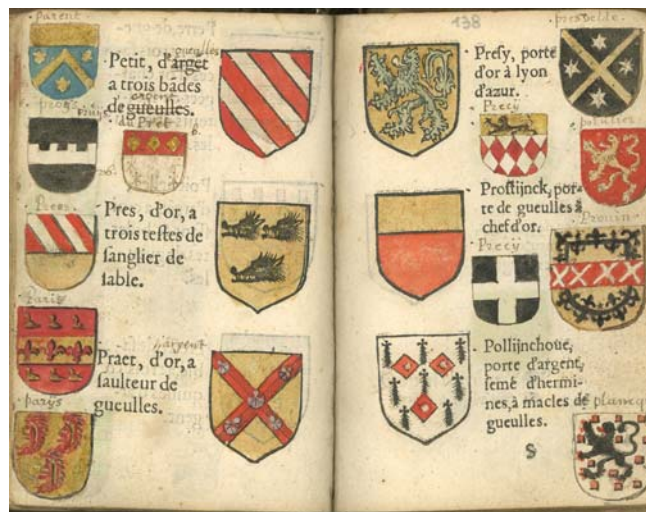 parent
gueulles
Petit, d'arget
a trois bādes
de gueulles.
argent
du Pret
Pres, d'or, a
trois testes de
sanglier de
sable.
Paris
d'argent
Praet, d'or, a
saulteur de
gueulles.
parys
138
Presy, porte
d'or à lyon
d'azur.
Precy
Prostijnck, por-
te de gueulles à
chef d'or.
Prouin
Precy
Pollijnchoue,
porte d'argent,
semé d'hermi-
nes, à macles de
gueulles.
plancq
S